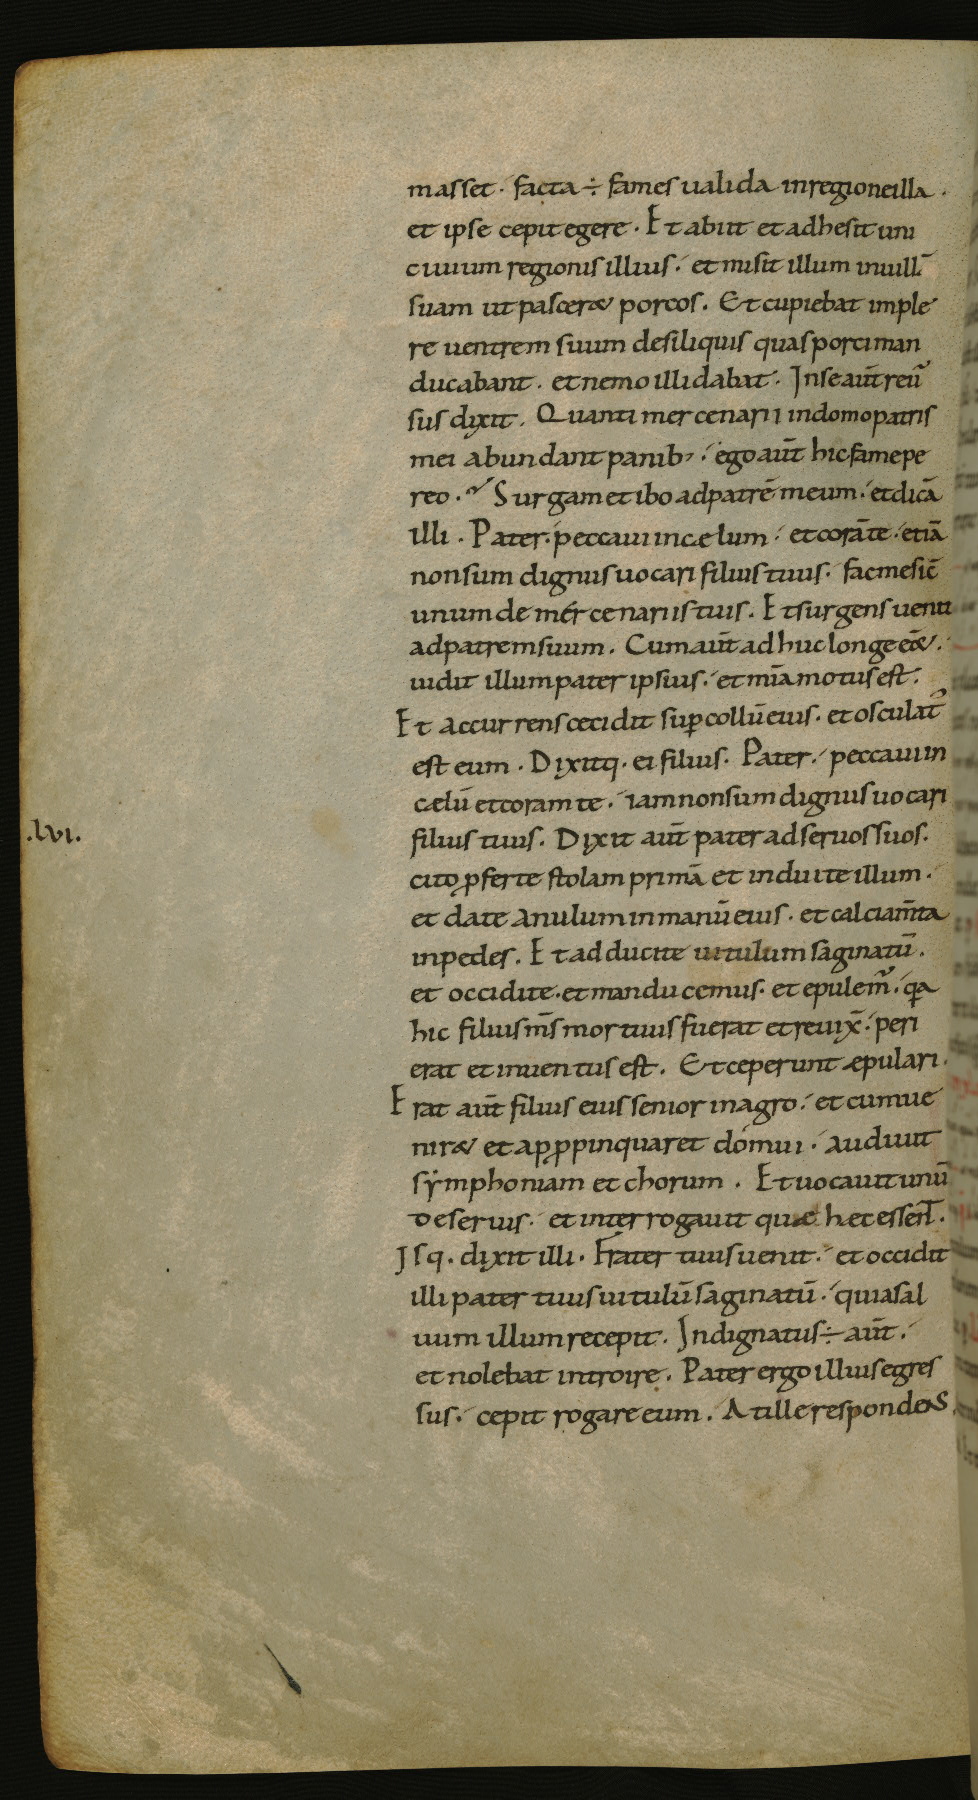 masset. facta ÷ fames ualida inregioneilla.
et ipse cepit egere. Et abiit et adhesit uni
ciuium regionis illius. et misit illum inuillā
suam ut pascer& porcos. Et cupiebat imple
re uentrem suum desiliquis quas porci man
ducabant. et nemo illi dabat. Inse aut̄ reū
sus dixit. Quanti mercenarii indomo patris
mei abundant panib; . ego aut̄ hic fame pe
reo. Surgam et ibo adpatrē meum. et dicā
illi. Pater. peccaui incælum. et corā te. etiā
non sum dignus uocari filius tuus. fac me sic̄
unum de mercenariis tuis. Et surgens uenit
adpatrem suum. Cum aut̄ adhuc longe eēt.
uidit illum pater ipsius. et mīa motus est.
Et accurrens cecidit sup̄ collū eius. et osculat̄
est eum. Dixitq. ei filius. Pater. peccaui in
cælū et coram te. iam non sum dignus uocari
.lvi.
filius tuus. Dixit aut̄ pater ad seruos suos.
cito ꝓferte stolam primā et induite illum.
et date anulum in manū eius. et calciam̄ta
inpedes. Et adducite uitulum saginatū.
et occidite. et manducemus. et epulem̄. qa
hic filius m̄s mortuus fuerat et reuix̄. peri
erat et inuentus est. Et ceperunt æpulari.
Erat aut̄ filius eius senior inagro. et cum ue
nir& et apꝓpinquaret domui. audiuit
symphoniam et chorum. Et uocauit unū
deseruis. et interrogauit quæ hec essent̄.
Isq. dixit illi. Frater tuus uenit. et occidit
illi pater tuus uitulū saginatū. quia sal
uum illum recepit. Indignatus ÷ aut̄.
et nolebat introire. Pater ergo illius egres
sus. cepit rogare eum. At ille respondens